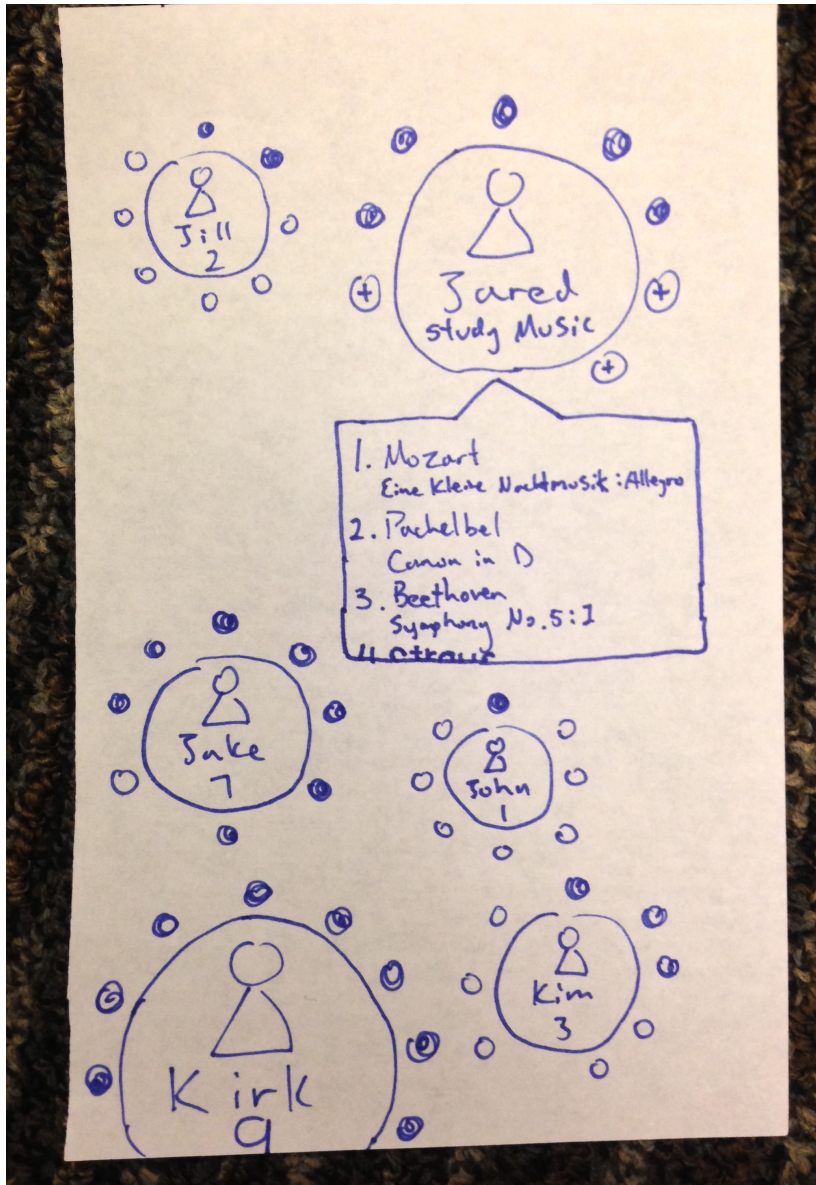 Jill
2
Jared
study Music
+
+
+
1. Mozart
Eine Kleine Nachtmusik : Allegro
2. Pachelbel
Canon in D
3. Beethoven
Symphony No. 5 : I
Jake
7
John
1
Kim
3
Kirk
9